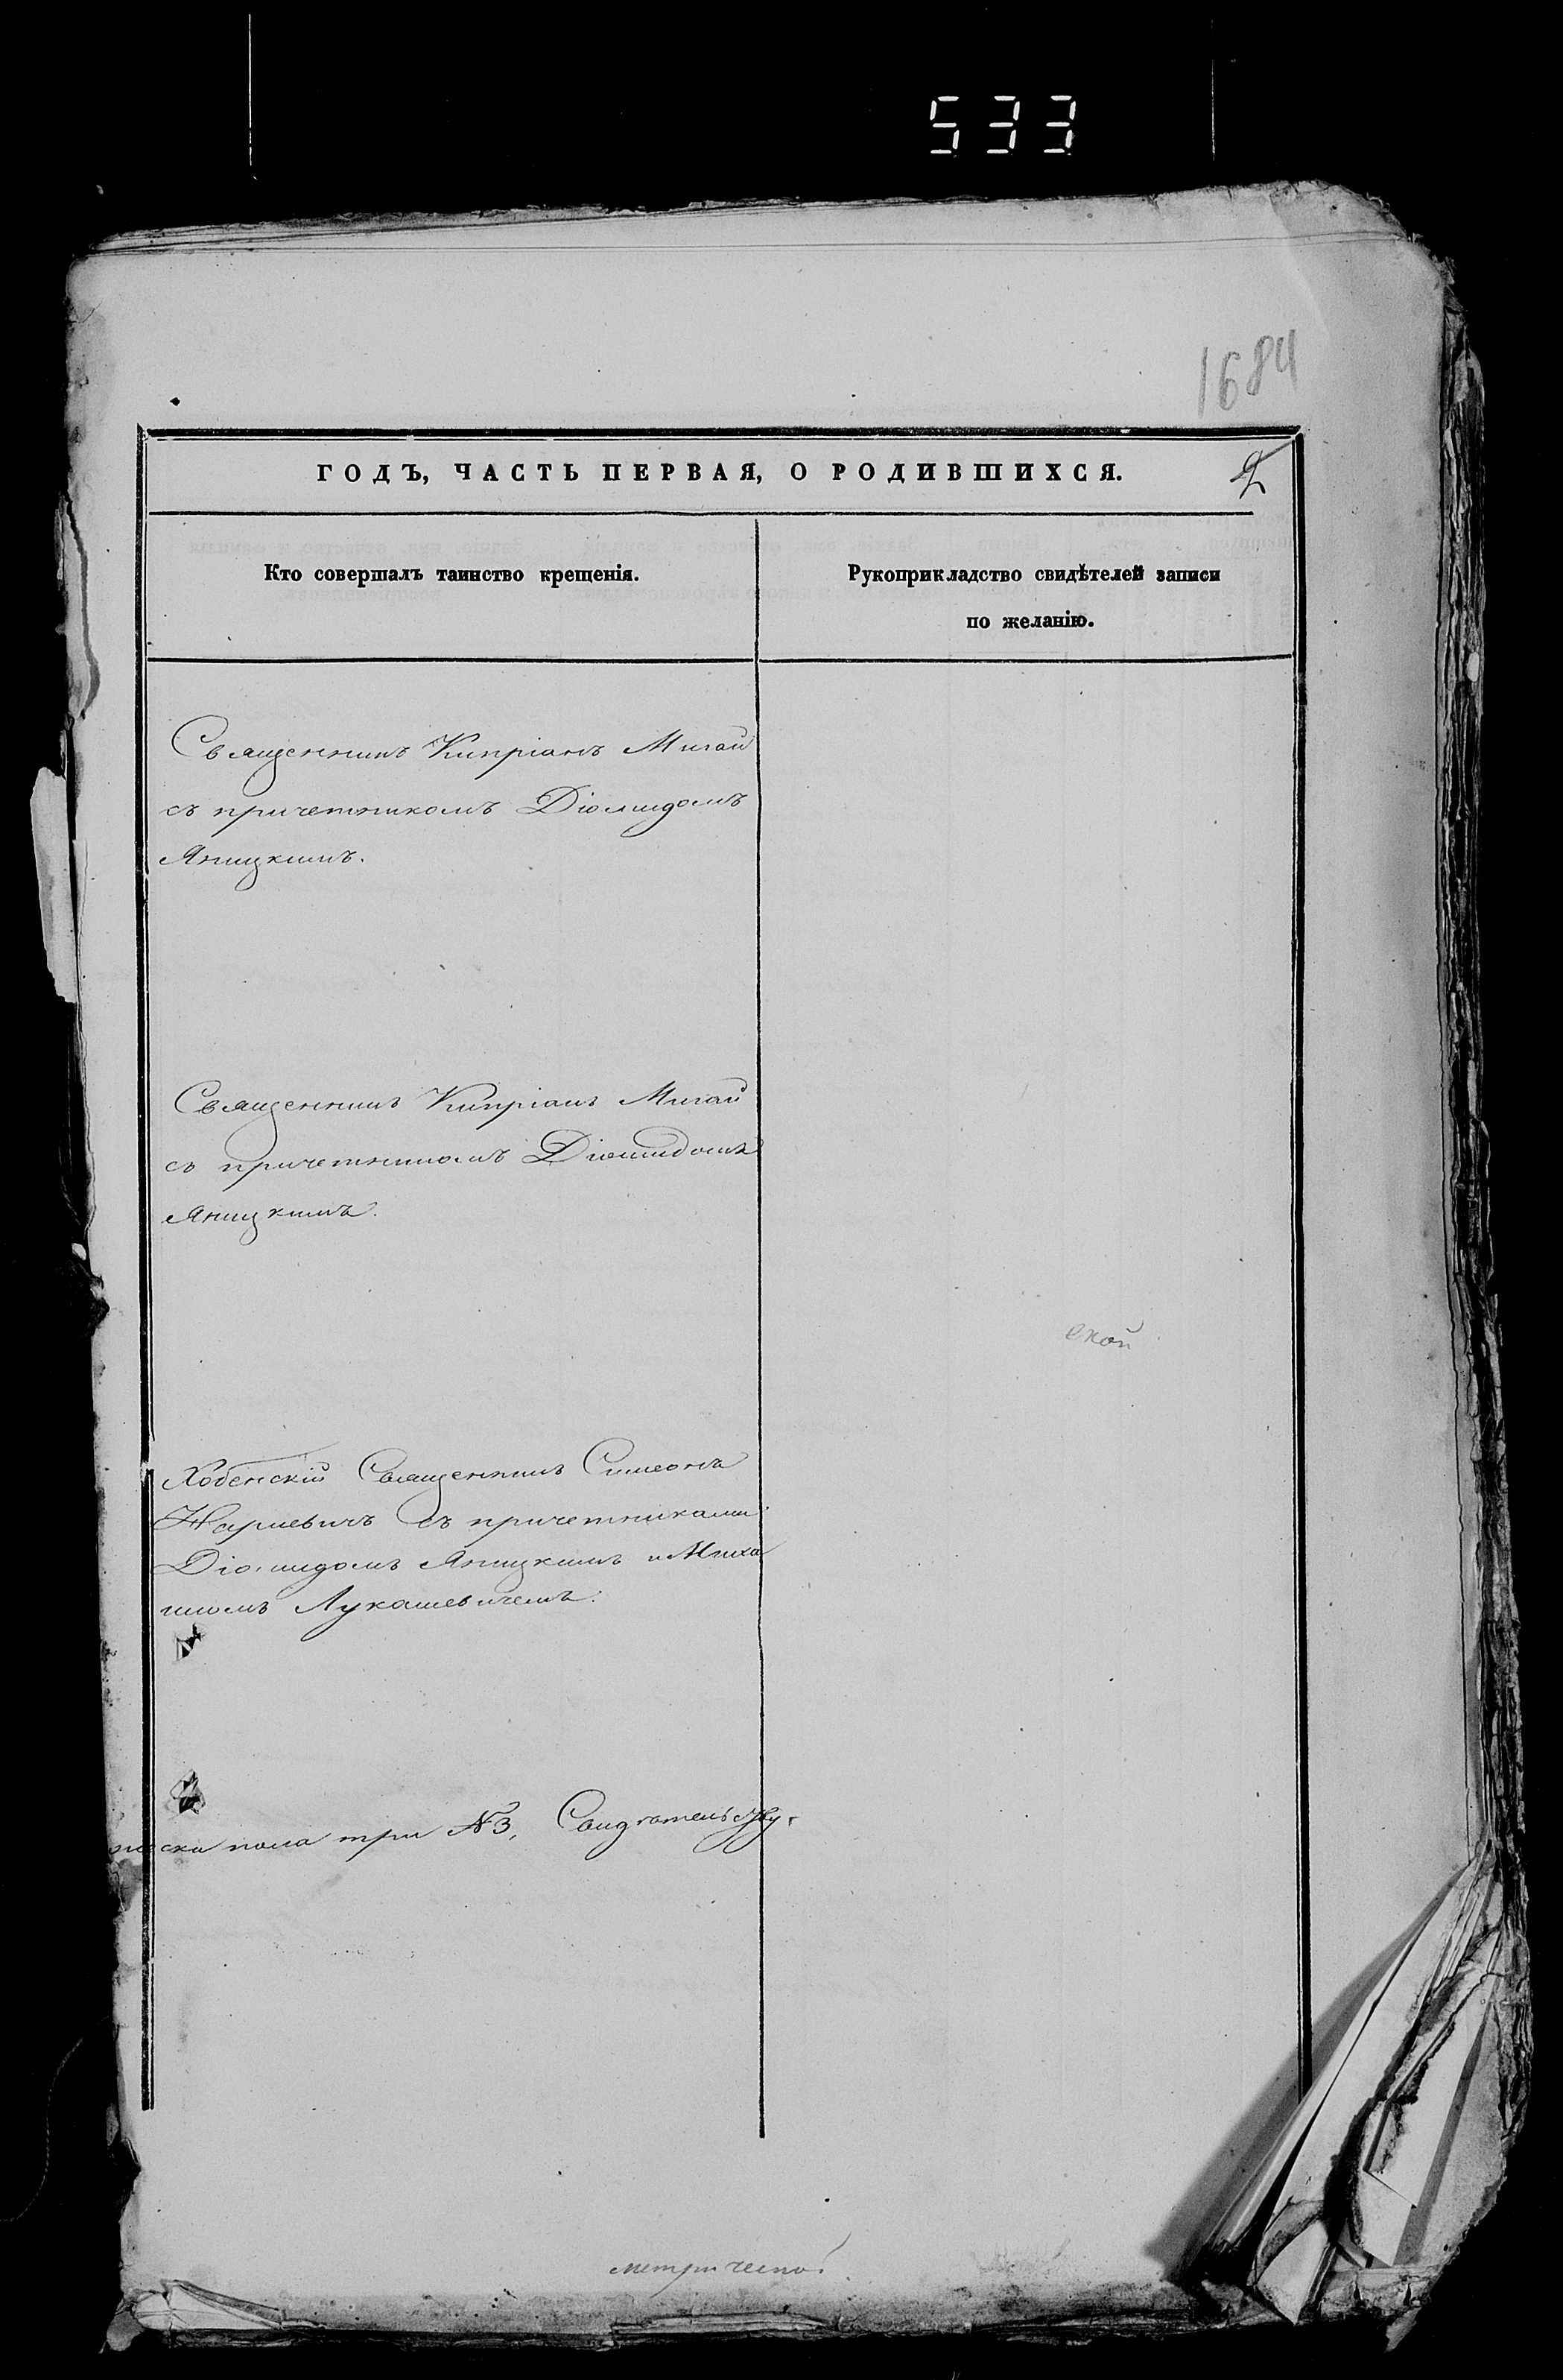 533
1684
ГОДЪ, ЧАСТЬ ПЕРВАЯ, О РОДИВШИХСЯ.
2
Кто совершалъ таинство крещенія.
Рукоприкладство свидѣтелей записи
по желанію.
Священникъ Кипріанъ Мигай
съ причетникомъ Діомидомъ
Яницкимъ.
Священникъ Кипріанъ Мигай
съ причетникомъ Діомидомъ
Яницкимъ.
ской
Хобенскій Священникъ Симеонъ
съ причетниками
Діомидомъ Яницкимъ и Миха
иломъ Лукашевичемъ.
пола три №3, Свидѣтельству
метрической